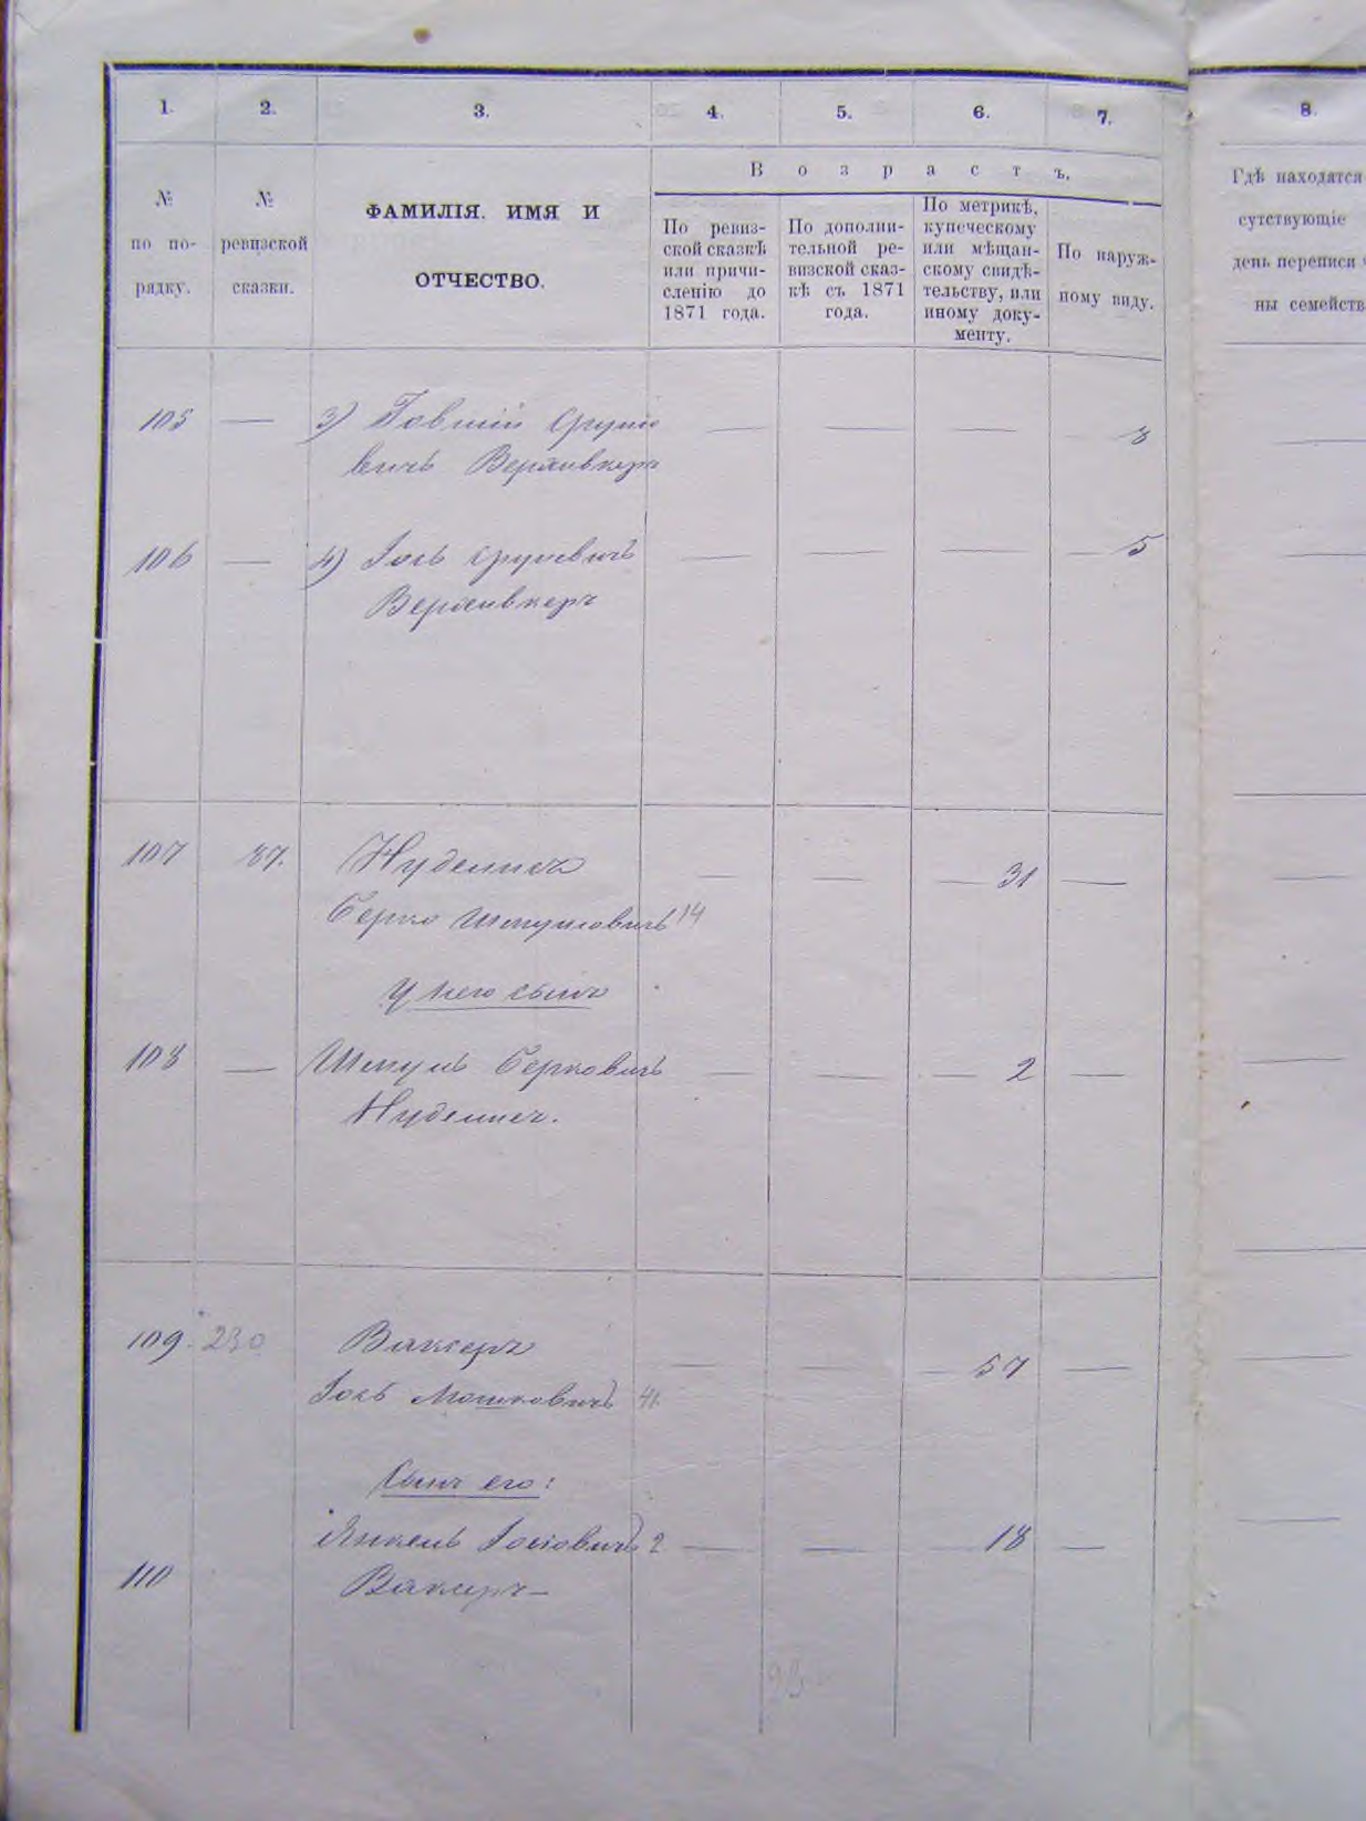 1. 2. 3. 4. 5. 6. 7. 8.
№
по по-
рядку.
№
ревизской
сказки.
ФАМИЛІЯ. ИМЯ И
ОТЧЕСТВО.
Возрастъ.
По ревиз-
ской сказкѣ
или причи-
сленію до
1871 года.
По дополни-
тельной ре-
визской сказ-
кѣ съ 1871
года.
По метрикѣ,
купеческому
или мѣщан-
скому свидѣ-
тельству, или
иному доку-
менту.
По наруж-
ному виду.
Гдѣ находятся
сутствующіе
день переписи ч
ны семейств
105 — 3) — — — 8
вичъ
106 — 4) Іось Сруловичъ — — — 5
107 87. Нудельманъ — — — 31 —
Берко Шмулевичъ 14
У него сынъ
108 — Шмуль Берковичъ — — — 2 —
109. 230 Вакеръ — — — 57 —
Іось Мошковичъ 41.
Сынъ его:
Янкель Іосіовичъ 2 — — — 18 —
110 Вакеръ —